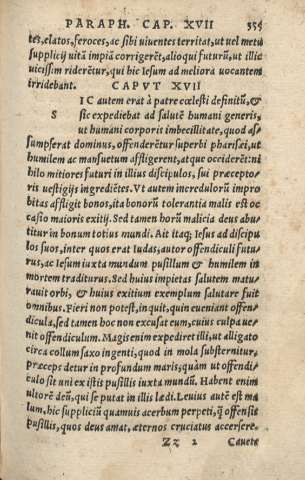 PARAPH. CAP. XVII 355
tes, elatos, feroces, ac sibi uiuentes territat, ut uel metu
supplicij uitã impiã corrigerẽt, alioqui futurũ, ut illic
uicissim riderẽtur, qui hic Iesum ad meliora uocantem
irridebant. CAPVT XVII
S IC autem erat à patre cœlesti definitũ, &
sic expediebat ad salutẽ humani generis,
ut humani corporis imbecillitate, quod as/
sumpserat dominus, offenderẽtur superbi pharisei, ut
humilem ac mansuetum affligerent, atque occiderẽt: ni
hilo mitiores futuri in illius discipulos, sui præcepto-
ris uestigijs ingrediẽtes. Vt autem incredulorũ impro
bitas affligit bonos, ita bonorũ tolerantia malis est oc
casio maioris exitij. Sed tamen horũ malicia deus abu
titur in bonum totius mundi. Ait itaq; Iesus ad discipu
los suos, inter quos erat Iudas, autor offendiculi futu
rus, ac Iesum iuxta mundum pusillum & humilem in
mortem traditurus. Sed huius impietas salutem matu-
rauit orbi, & huius exitium exemplum salutare fuit
omnibus. Fieri non potest, inquit, quin eueniant offen/
dicula, sed tamen hoc non excusat eum, cuius culpa ue/
nit offendiculum. Magis enim expediret illi, ut alligato
circa collum saxo ingenti, quod in mola substernitur,
præceps detur in profundum maris, quàm ut offendi/
culo sit uni ex istis pusillis iuxta mundũ. Habent enim
ultorẽ deũ, qui se putat in illis lædi. Leuius autẽ est ma
lum, hic suppliciũ quamuis acerbum perpeti, q̃ offensis
pusillis, quos deus amat, æternos cruciatus accersere.
Zz 2 Cauete